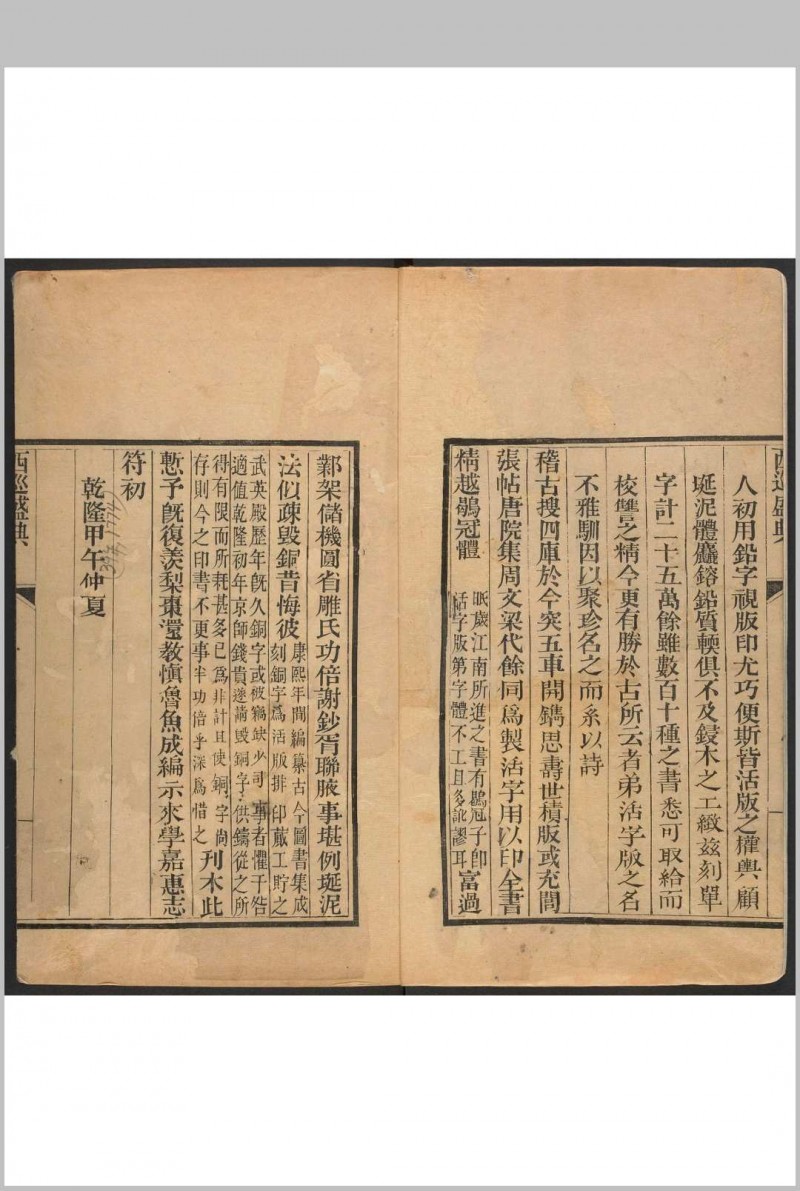 西巡盛典
人初用鉛字視版印尤巧便斯皆活版之權輿顧
埏泥體麤鎔鉛質輭俱不及鋟木之工緻兹刻單
字計二十五萬餘雖數百十種之書悉可取給而
校讐之精今更有勝於古所云者弟活字版之名
不雅馴因以聚珍名之而系以詩
稽古搜四庫於今突五車開鐫思壽世積版或充閭
張帖唐院集周文梁代餘同爲製活字用以印全書
精越鶡冠體
眂歲江南所進之書有鶡冠子卽
活字版第字體不工且多訛謬耳
富過
鄴架儲機圓省雕氏功倍謝鈔胥聯腋事堪例埏泥
法似疎毀銅昔悔彼
康熙年間編纂古今圖書集成
刻銅字爲活版排印蕆工貯之
武英殿歷年旣久銅字或被竊缺少司事者懼干咎
適值乾隆初年京師錢貴遂請毀銅字供鑄從之所
得有限而所耗甚多已爲非計且使銅字尚
存則今之印書不更事半功倍乎深爲惜之
刊木此
慙予旣復羡梨棗還教慎魯魚成編示來學嘉惠志
符初
乾隆甲午仲夏
西巡盛典